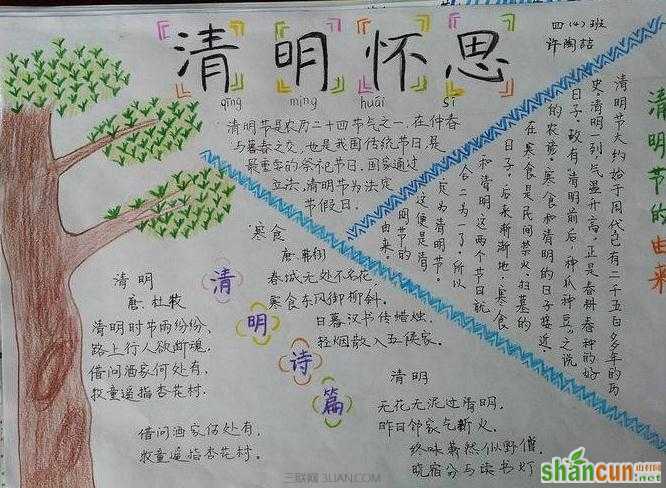 清明怀思
qīng míng huái sī
四(4)班
许陶桔
清明节是农历二十四节气之一,在仲春
与暮春之交,也是我国传统节日,是
最重要的祭祀节日,国家通过
立法,清明节为法定
节假日.
清明节的由来
清明节大约始于周代已有二千五百多年的历
史,清明一到,气温升高,正是春耕春种的好
日子,故有"清明前后,种瓜种豆"之说
的农谚。寒食和清明的日子接近,
在寒食是民间禁火、扫墓的
日子,后来渐渐地,寒食
和清明这两个节日就
合二为一了,所以
定为清明节。
这便是清
明节的
由来。
清明
唐.杜牧
清明时节雨纷纷,
路上行人欲断魂,
借问酒家何处有,
牧童遥指杏花村.
借问酒家何处有,
牧童遥指杏花村.
清明诗篇
寒食
唐.韩翃
春城无处不飞花,
寒食东风御柳斜.
日暮汉书传蜡烛,
轻烟散入五侯家.
清明
无花无泥过清明,
昨日邻家乞新火,
终味萧然似野僧,
晓窗分与读书灯
三联网 3LIAN.COM
shancun.net
山村网